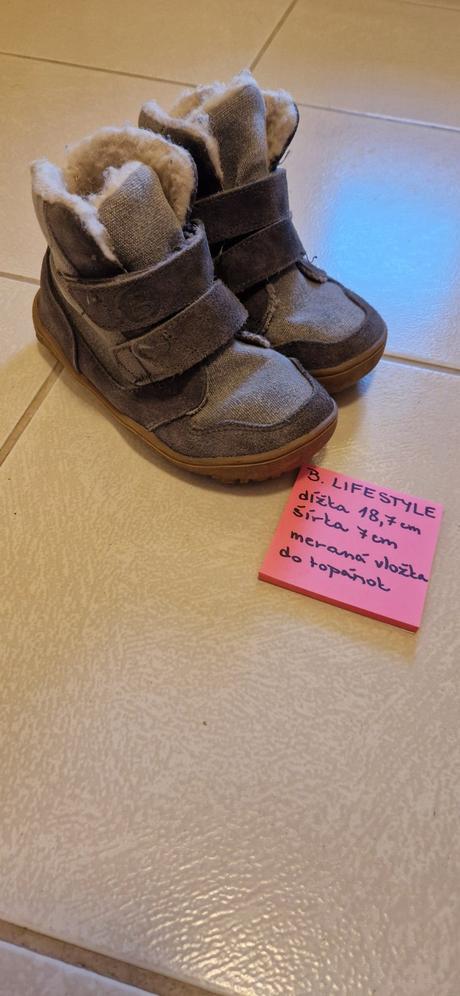 B. LIFESTYLE
dĺžka 18,7 cm
šírka 7 cm
meraná vložka
do topánok